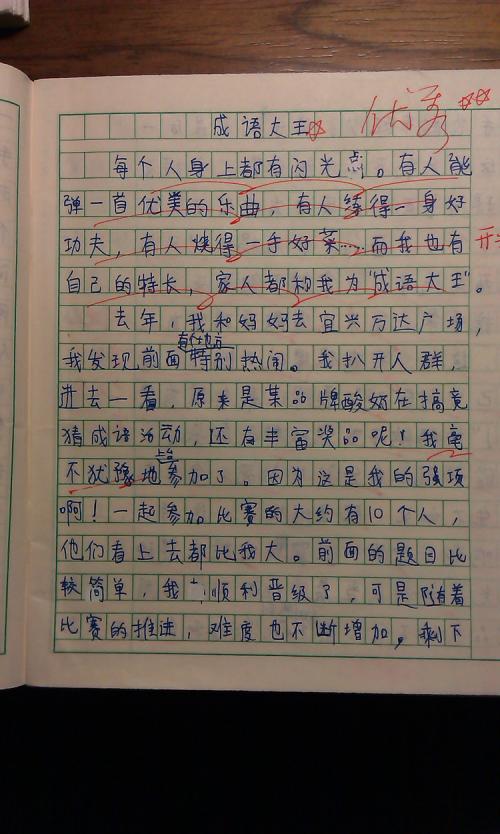 成语大王
优秀
每个人身上都有闪光点。有人能
弹一首优美的乐曲，有人练得一身好
功夫，有人烧得一手好菜……而我也有
自己的特长，家人都和我为"成语大王"。
去年，我和妈妈去宜兴万达广场，
有个地方
我发现前面特别热闹。我扒开人群，
进去一看，原来是某品牌酸奶在搞竞
猜成语活动，还有丰富奖品呢！我毫
不犹豫地参加了。因为这是我的强项
啊！一起参加比赛的大约有10个人，
他们看上去都比我大。前面的题目比
较简单，我顺利晋级了，可是随着
比赛的推进，难度也不断增加，剩下